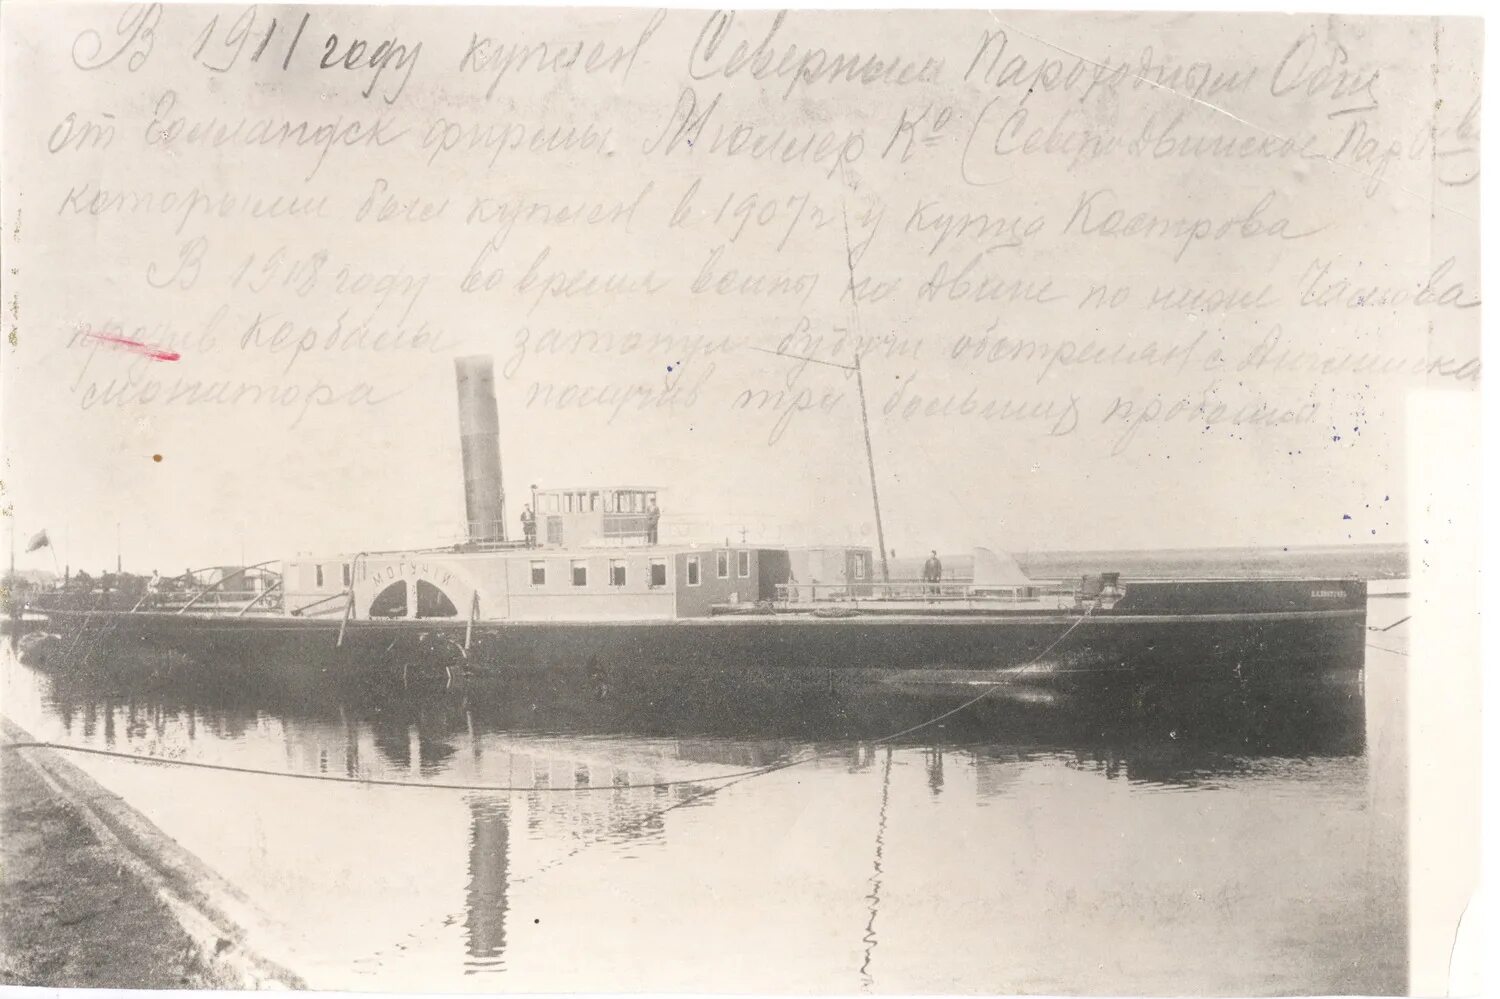 В 1911 году куплен Северным Пароходным Общ
от Голландск фирмы. Мюллер Ко (Северо Двинское Пар
которыми был куплен в 1907 г у купца Кострова
В 1918 году во время войны на Двине по ниже Чамова
против Корбалы затонул будучи обстрелян с Английска
монитора получив три больших пробоины
МОГУЧІЙ